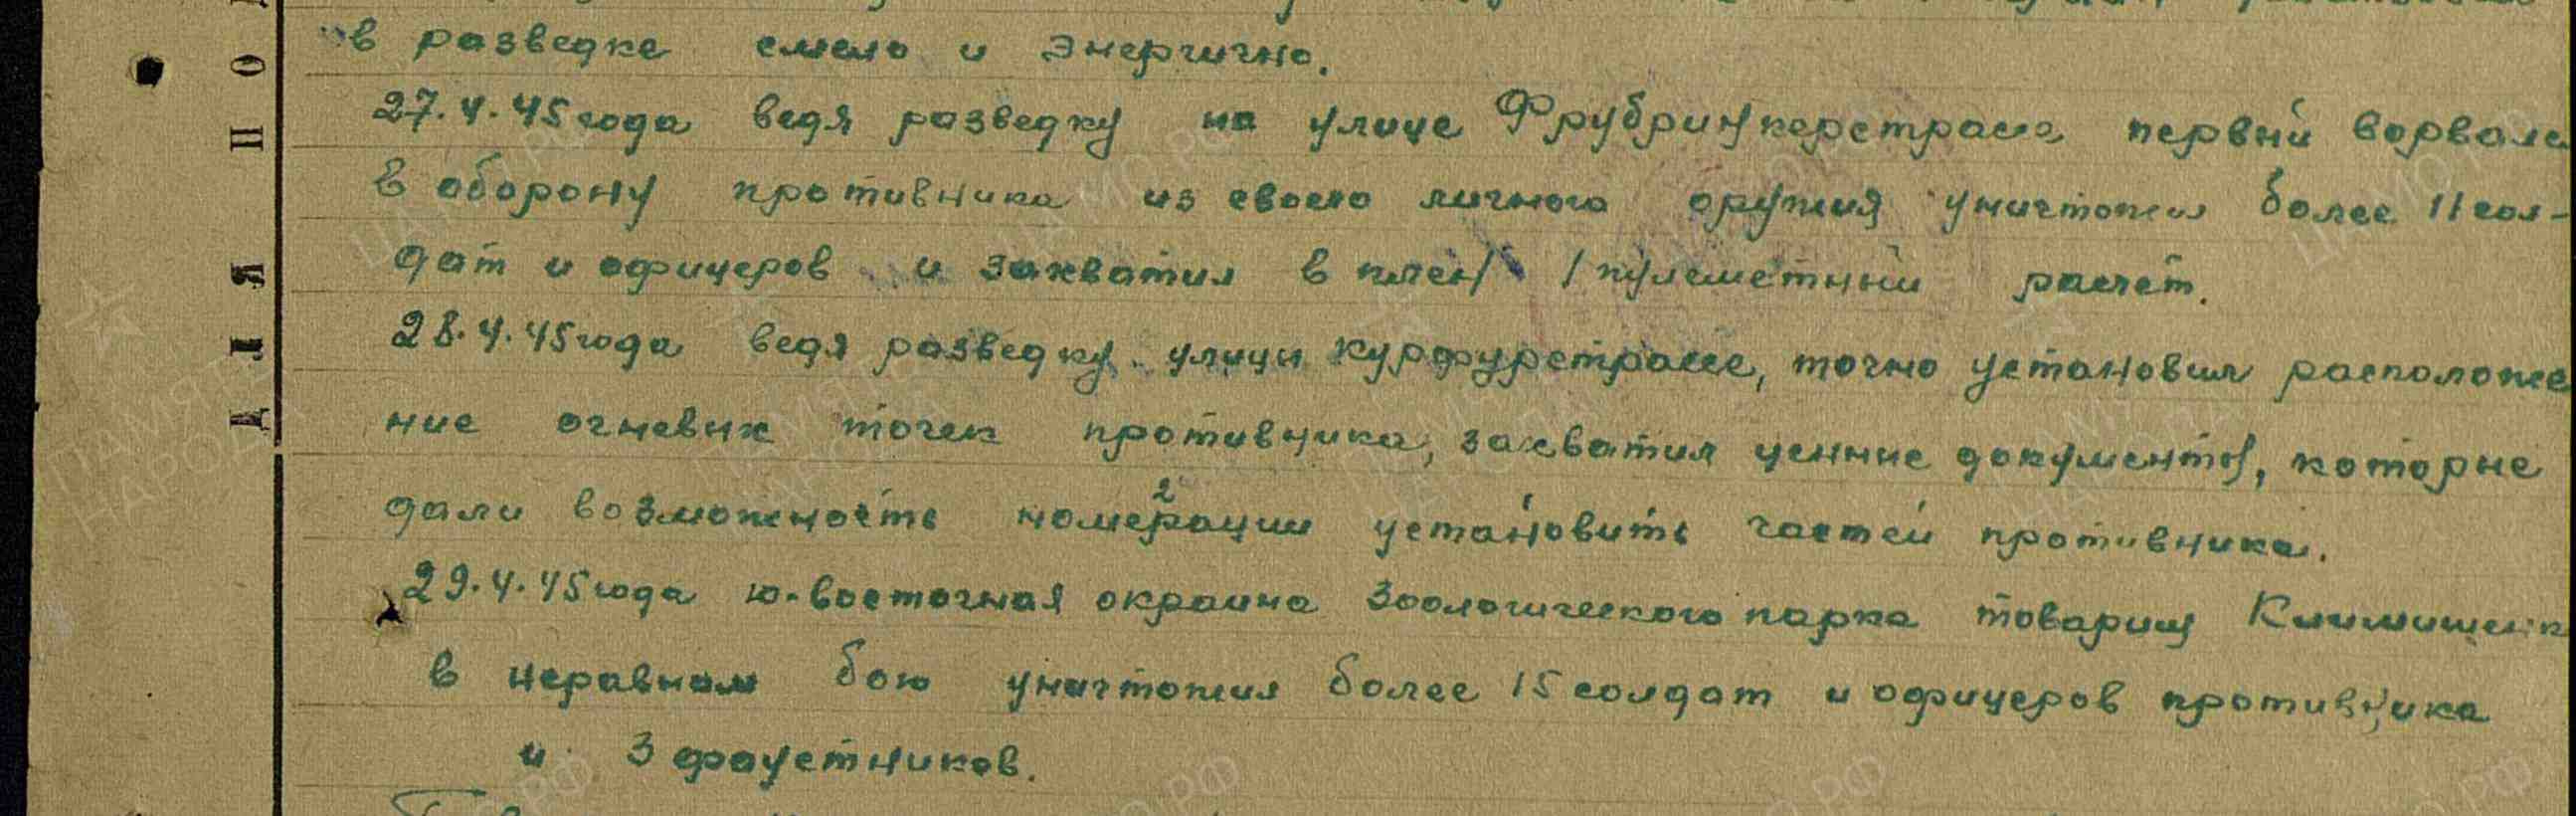 в разведке смело и энергично.
27.4.45 года ведя разведку на улице Фрубринукерстрасе первый ворвался
в оборону противника из своего личного оружия уничтожил более 11 сол-
дат и офицеров и захватил в плен 1 пулеметный расчет.
28.4.45 года ведя разведку улицы курфурстрассе, точно установил расположе
ние огневых точек противника, захватил ценные документы, которые
дали возможность номерации 2 установить частей противника.
29.4.45 года ю-восточная окраина Зоологического парка товарищ
в неравном бою уничтожил более 15 солдат и офицеров противника
и 3 фаустников.
ДЛЯ ПО
ПАМЯТЬ НАРОДА
ЦАМО РФ